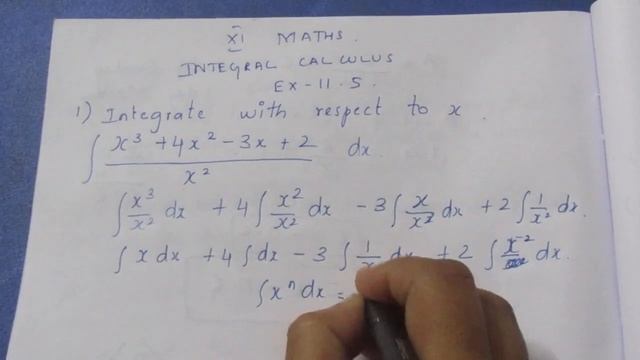 XI MATHS.
INTEGRAL CALCULUS
EX - 11.5.
1) Integrate with respect to x.
∫ (x³ + 4x² - 3x + 2) / x² dx.
∫ x³/x² dx + 4 ∫ x²/x² dx - 3 ∫ x/x² dx + 2 ∫ 1/x² dx.
∫ x dx + 4 ∫ dx - 3 ∫ 1/x dx + 2 ∫ x⁻² dx.
∫ xⁿ dx =